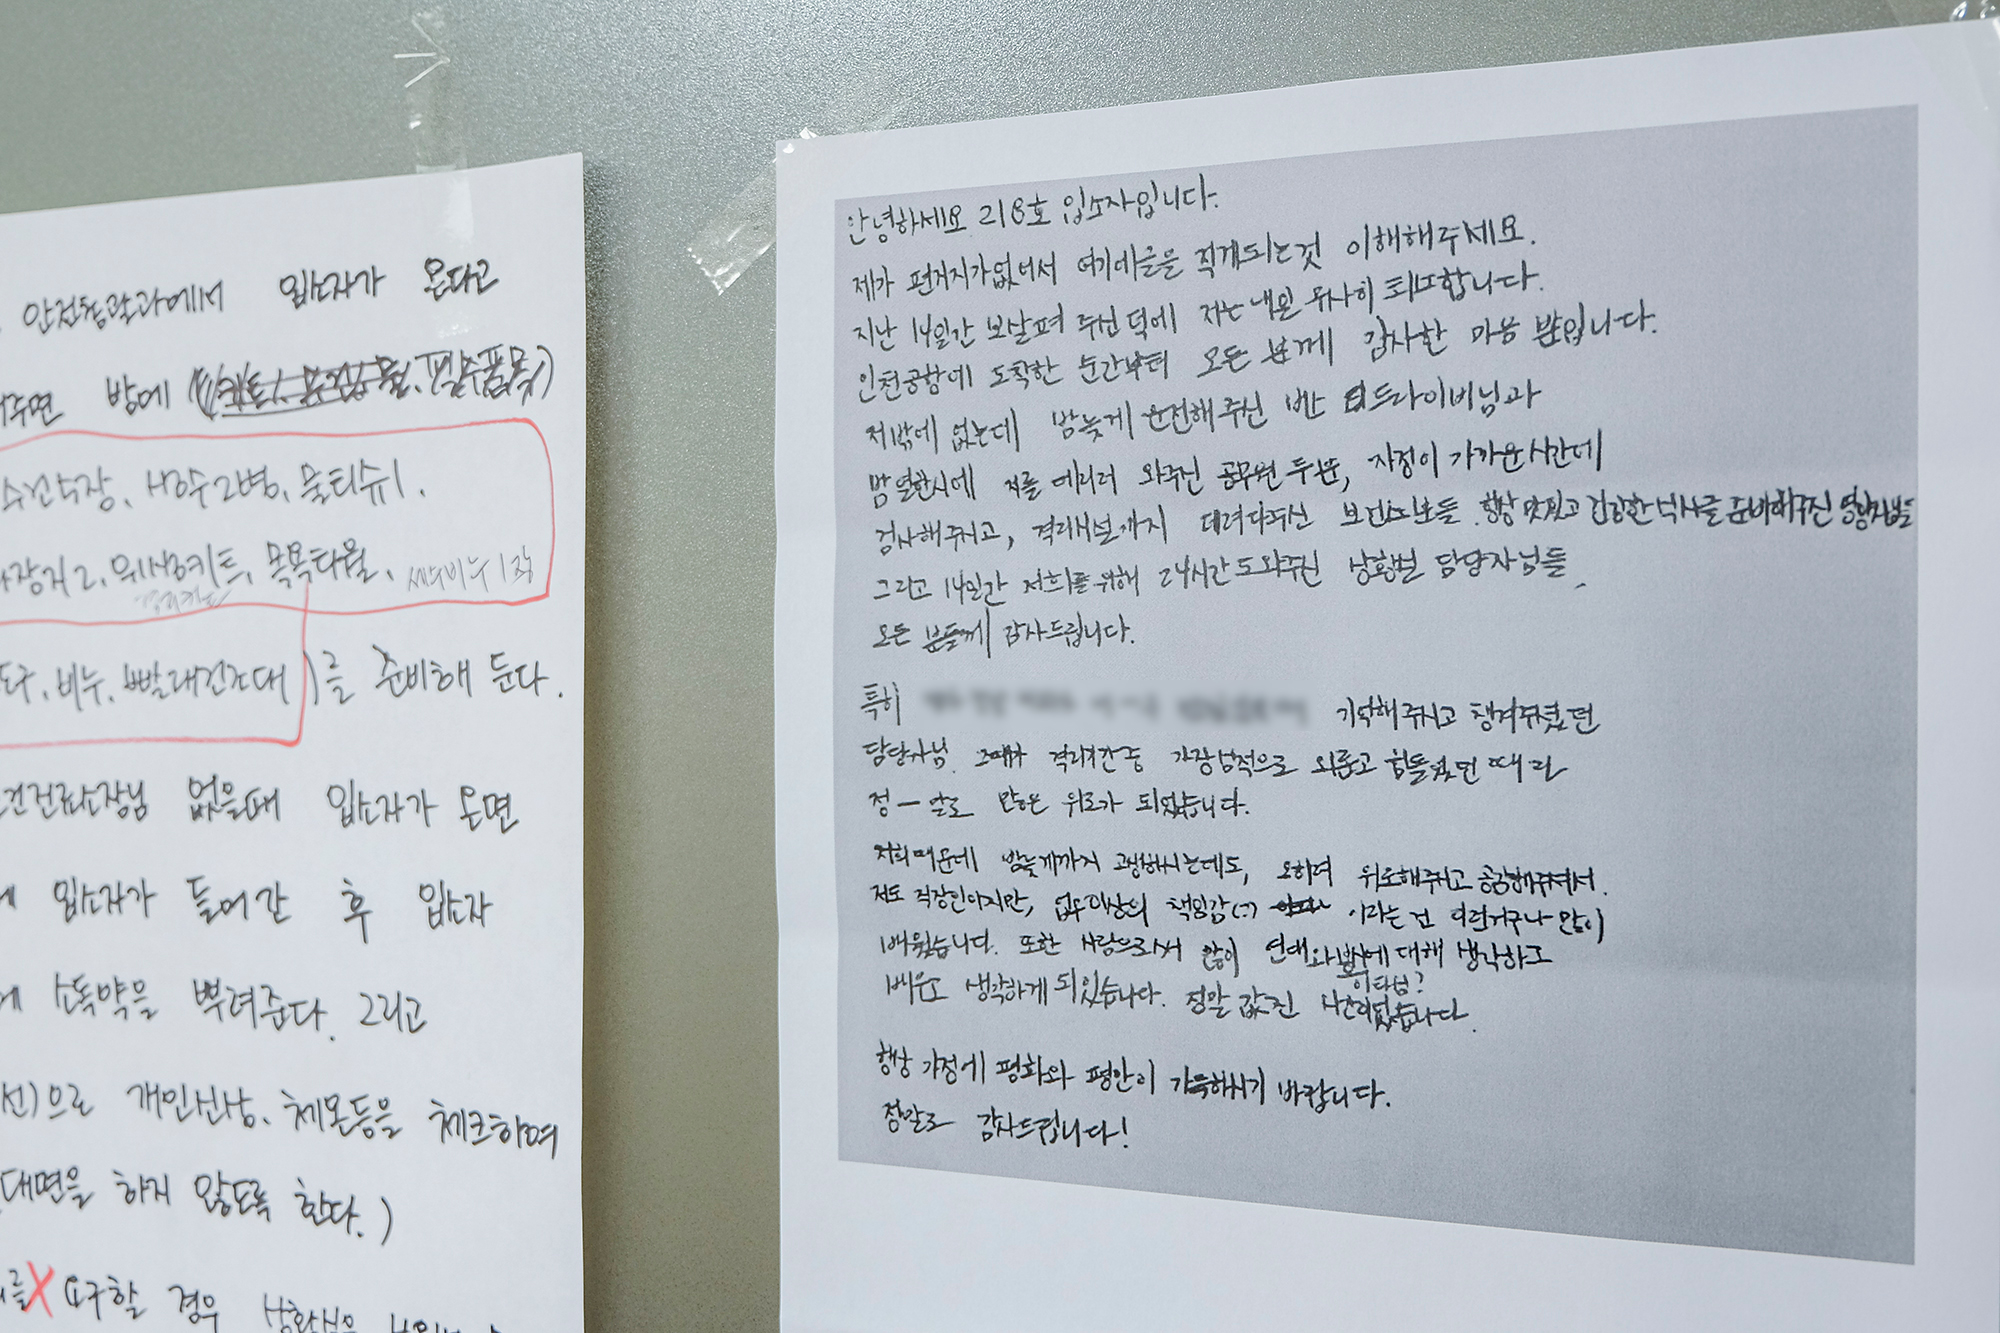 안전총괄과에서 입소자가 온다고
주면 밤에 ( 필수품목)
2병, 물티슈1.
2, 위생키트, 목욕타월, 세수비누 1장
비누, 빨래건조대)를 준비해 둔다.
없을때 입소자가 오면
입소자가 들어간 후 입소자
소독약을 뿌려준다. 그리고
선)으로 개인신상, 체온등을 체크하며
대면을 하지 않도록 한다.)
를 X 요구할 경우
안녕하세요 218호 입소자입니다.
제가 편지지가없어서 여기에글을 적게되는것 이해해주세요.
지난 14일간 보살펴 주신 덕에 저는 내일 무사히 퇴소합니다.
인천공항에 도착한 순간부터 모든 분께 감사한 마음 뿐입니다.
저밖에 없는데 밤늦게 운전해주신 밴 드라이버님과
밤 열한시에 저를 데리러 와주신 공무원 두분, 자정이 가까운시간에
검사해주시고, 격리시설까지 데려다주신 보건소분들. 항상 맛있고 건강한 식사를 준비해주신 영양사분들
그리고 14일간 저희를 위해 24시간 도와주신 상황별 담당자님들,
모든 분들께 감사드립니다.
특히 기억해주시고 챙겨주셨던
담당자님. 그때가 격리기간중 가장심적으로 외롭고 힘들었던 때라
정-말로 많은 위로가 되었습니다.
저희때문에 밤늦게까지 고생하시는데도, 오히려 위로해주시고 공감해주셔서.
저도 직장인이지만, 업무이상의 책임감(?) 이라는 건 이런거구나 많이
배웠습니다. 또한 사람으로써 많이 연대와 에 대해 생각하고
이타심?
배운 생각하게 되었습니다. 정말 값진 시간이었습니다.
항상 가정에 평화와 평안이 가득하시기 바랍니다.
정말로 감사드립니다!